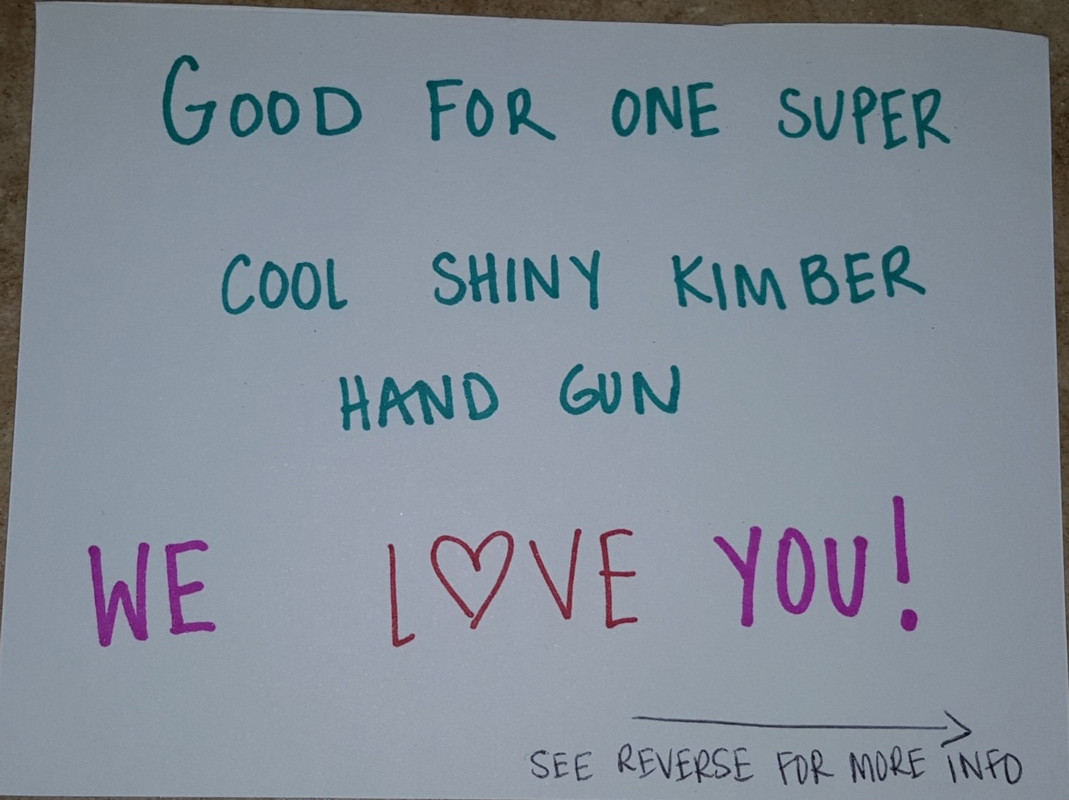 GOOD FOR ONE SUPER
COOL SHINY KIMBER
HAND GUN
WE L♡VE YOU!
SEE REVERSE FOR MORE INFO